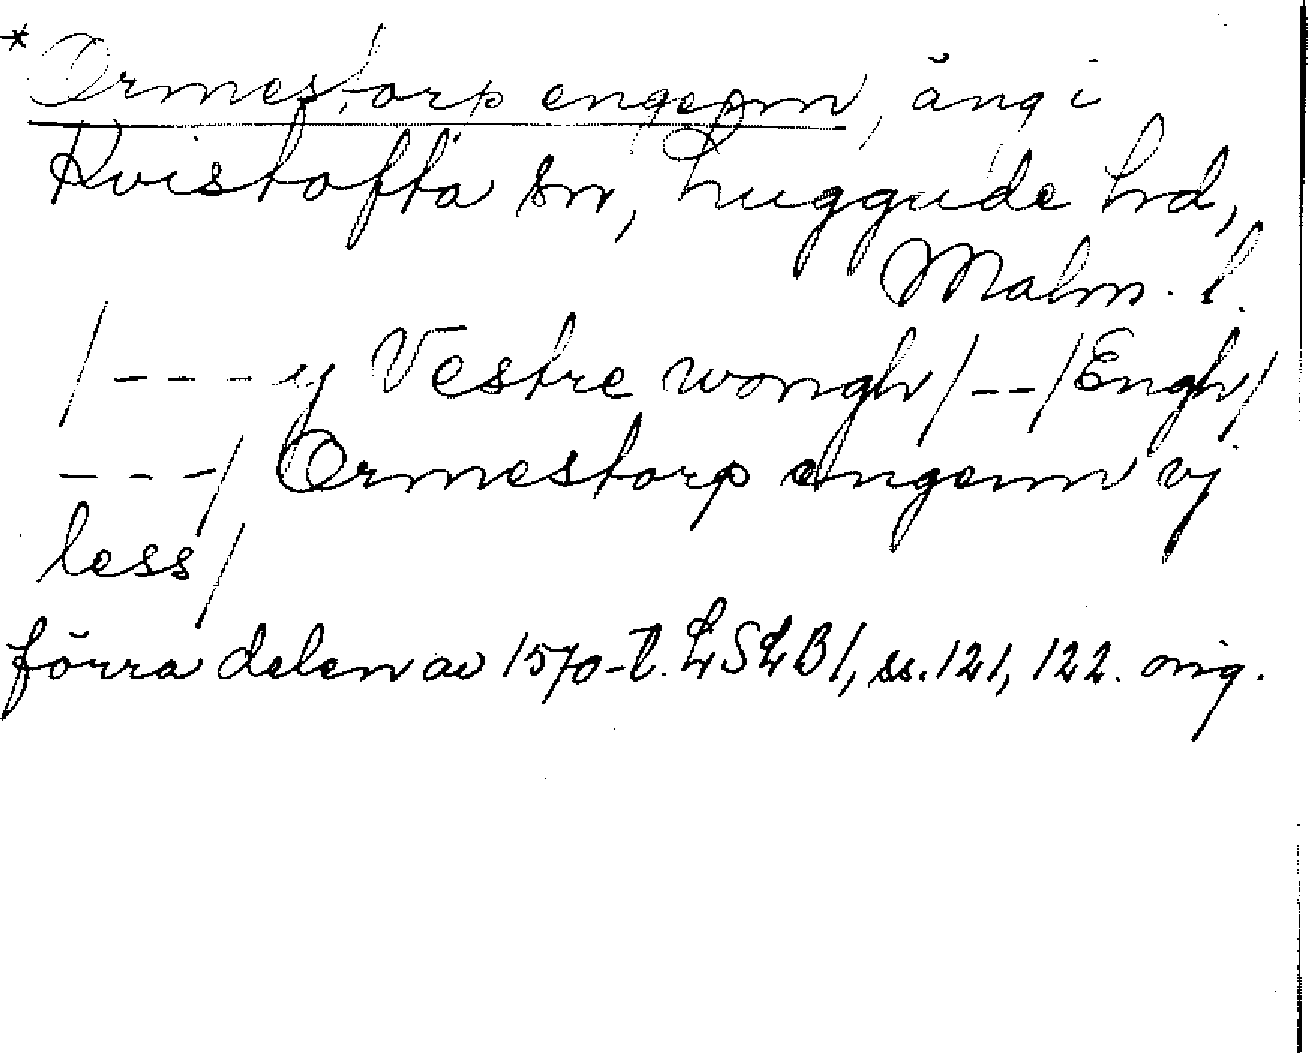 *Ormestorp engenn, äng i
Kvistofta sn, Luggude hd,
Malm. l.
/---y Vestre wongh/--/Engh/
---/ Ormestorp engenn vj
less/
förra delen av 1570-t. LSLB1, ss. 121, 122. orig.